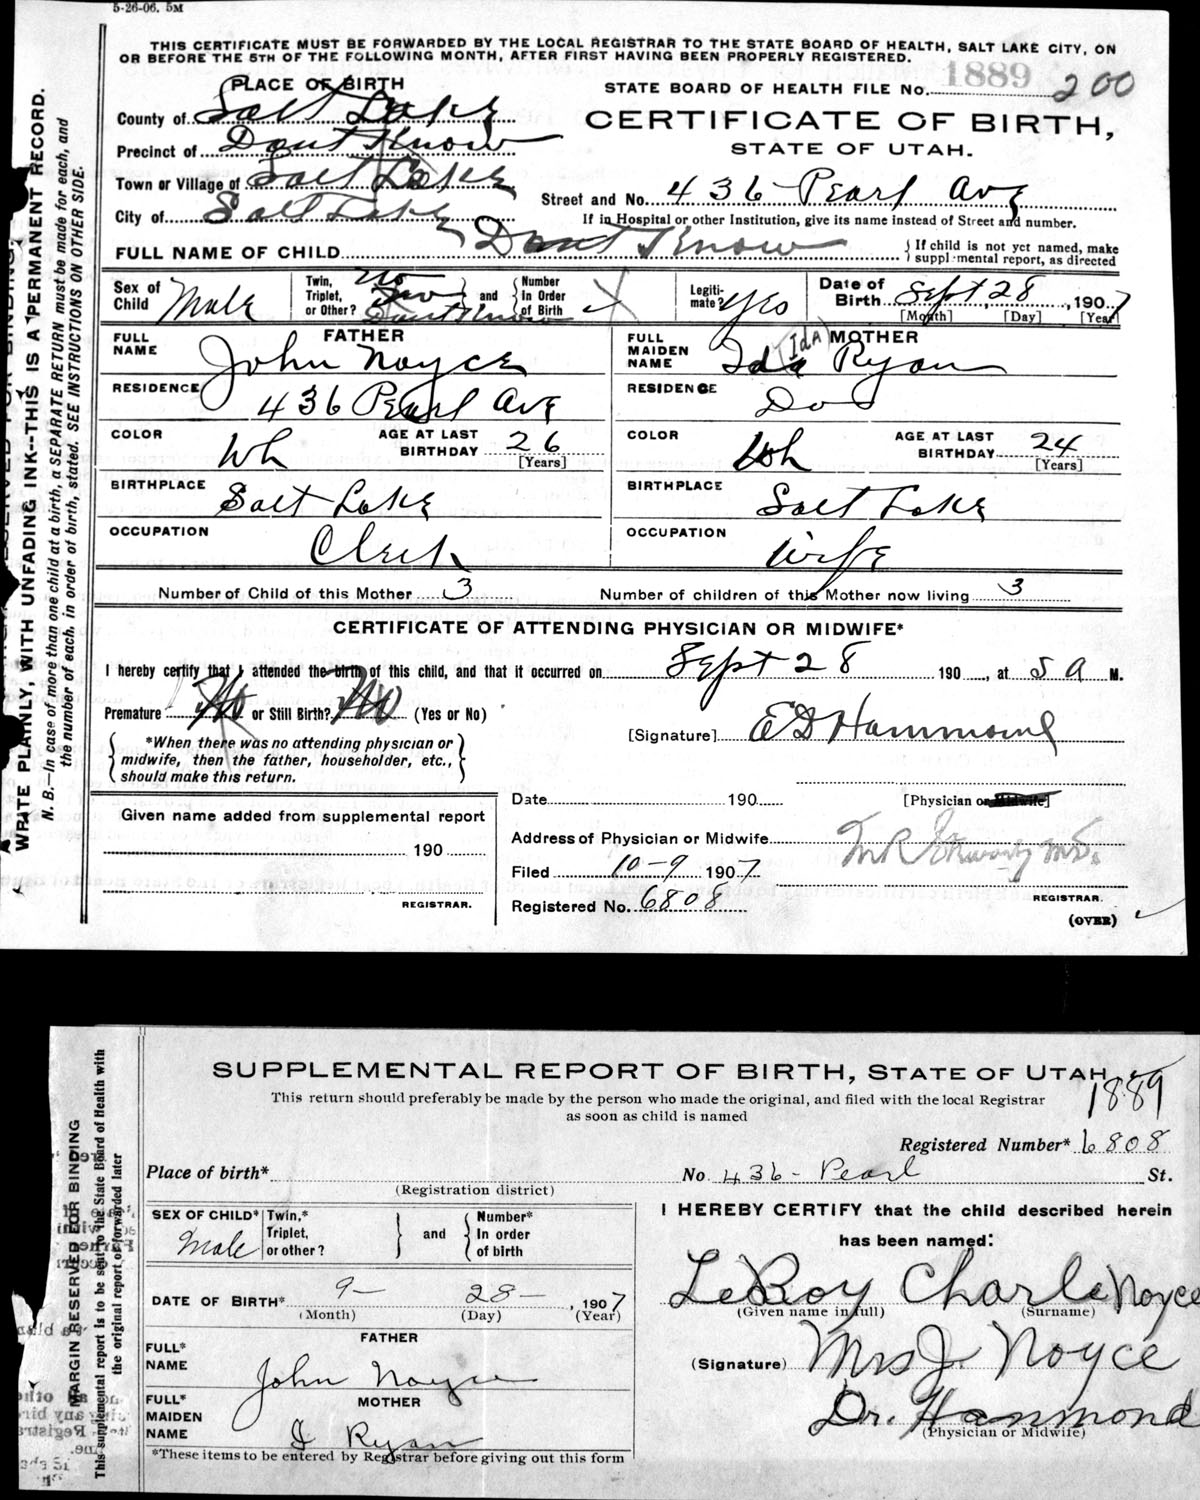 5-26-06. 5M
THIS CERTIFICATE MUST BE FORWARDED BY THE LOCAL REGISTRAR TO THE STATE BOARD OF HEALTH, SALT LAKE CITY, ON
OR BEFORE THE 5TH OF THE FOLLOWING MONTH, AFTER FIRST HAVING BEEN PROPERLY REGISTERED.
PLACE OF BIRTH
STATE BOARD OF HEALTH FILE No. 1889 200
County of Salt Lake
CERTIFICATE OF BIRTH,
Precinct of Dont Know
STATE OF UTAH.
Town or Village of Salt Lake
Street and No. 436 Pearl Ave
City of Salt Lake
If in Hospital or other Institution, give its name instead of Street and number.
FULL NAME OF CHILD Dont Know
If child is not yet named, make
supplemental report, as directed
Sex of Child Male
Twin, Triplet, or Other? No Dont Know and Number In Order of Birth
Legiti-mate? Yes
Date of Birth Sept 28, 1907
[Month] [Day] [Year]
FATHER
FULL NAME John Noyce
RESIDENCE 436 Pearl Ave
COLOR Wh AGE AT LAST BIRTHDAY 26
[Years]
BIRTHPLACE Salt Lake
OCCUPATION Clerk
MOTHER
FULL MAIDEN NAME Ida (Ida) Ryan
RESIDENCE Do
COLOR Wh AGE AT LAST BIRTHDAY 24
[Years]
BIRTHPLACE Salt Lake
OCCUPATION Wife
Number of Child of this Mother 3 Number of children of this Mother now living 3
CERTIFICATE OF ATTENDING PHYSICIAN OR MIDWIFE*
I hereby certify that I attended the birth of this child, and that it occurred on Sept 28 190, at 5 A M.
Premature No or Still Birth? No (Yes or No)
[Signature] ED Hammond
*When there was no attending physician or
midwife, then the father, householder, etc.,
should make this return.
Date 190 [Physician or Midwife]
Given name added from supplemental report
190
REGISTRAR.
Address of Physician or Midwife
Filed 10-9 1907
Registered No. 6808
REGISTRAR.
(OVER)
WRITE PLAINLY, WITH UNFADING INK--THIS IS A PERMANENT RECORD.
N. B.—In case of more than one child at a birth, a SEPARATE RETURN must be made for each, and
the number of each, in order of birth, stated. SEE INSTRUCTIONS ON OTHER SIDE.
SUPPLEMENTAL REPORT OF BIRTH, STATE OF UTAH
1889
This return should preferably be made by the person who made the original, and filed with the local Registrar
as soon as child is named
Registered Number* 6808
Place of birth* No. 436- Pearl St.
(Registration district)
SEX OF CHILD* Male
Twin,* Triplet, or other? and Number* In order of birth
I HEREBY CERTIFY that the child described herein
has been named:
DATE OF BIRTH* 9- 28-, 1907
(Month) (Day) (Year)
LeRoy Charle Noyce
(Given name in full) (Surname)
FATHER
FULL* NAME John Noyce
(Signature) Mrs J. Noyce
MOTHER
FULL* MAIDEN NAME I Ryan
Dr. Hammond
(Physician or Midwife)
*These items to be entered by Registrar before giving out this form
MARGIN RESERVED FOR BINDING
This supplemental report is to be sent to the State Board of Health with
the original report of forwarded later